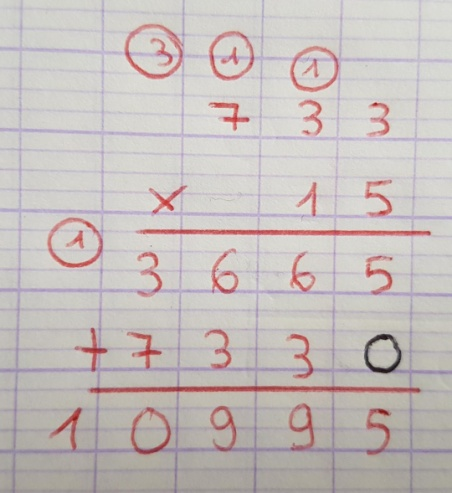 3 1 1
7 3 3
× 1 5
1
3 6 6 5
+ 7 3 3 0
1 0 9 9 5